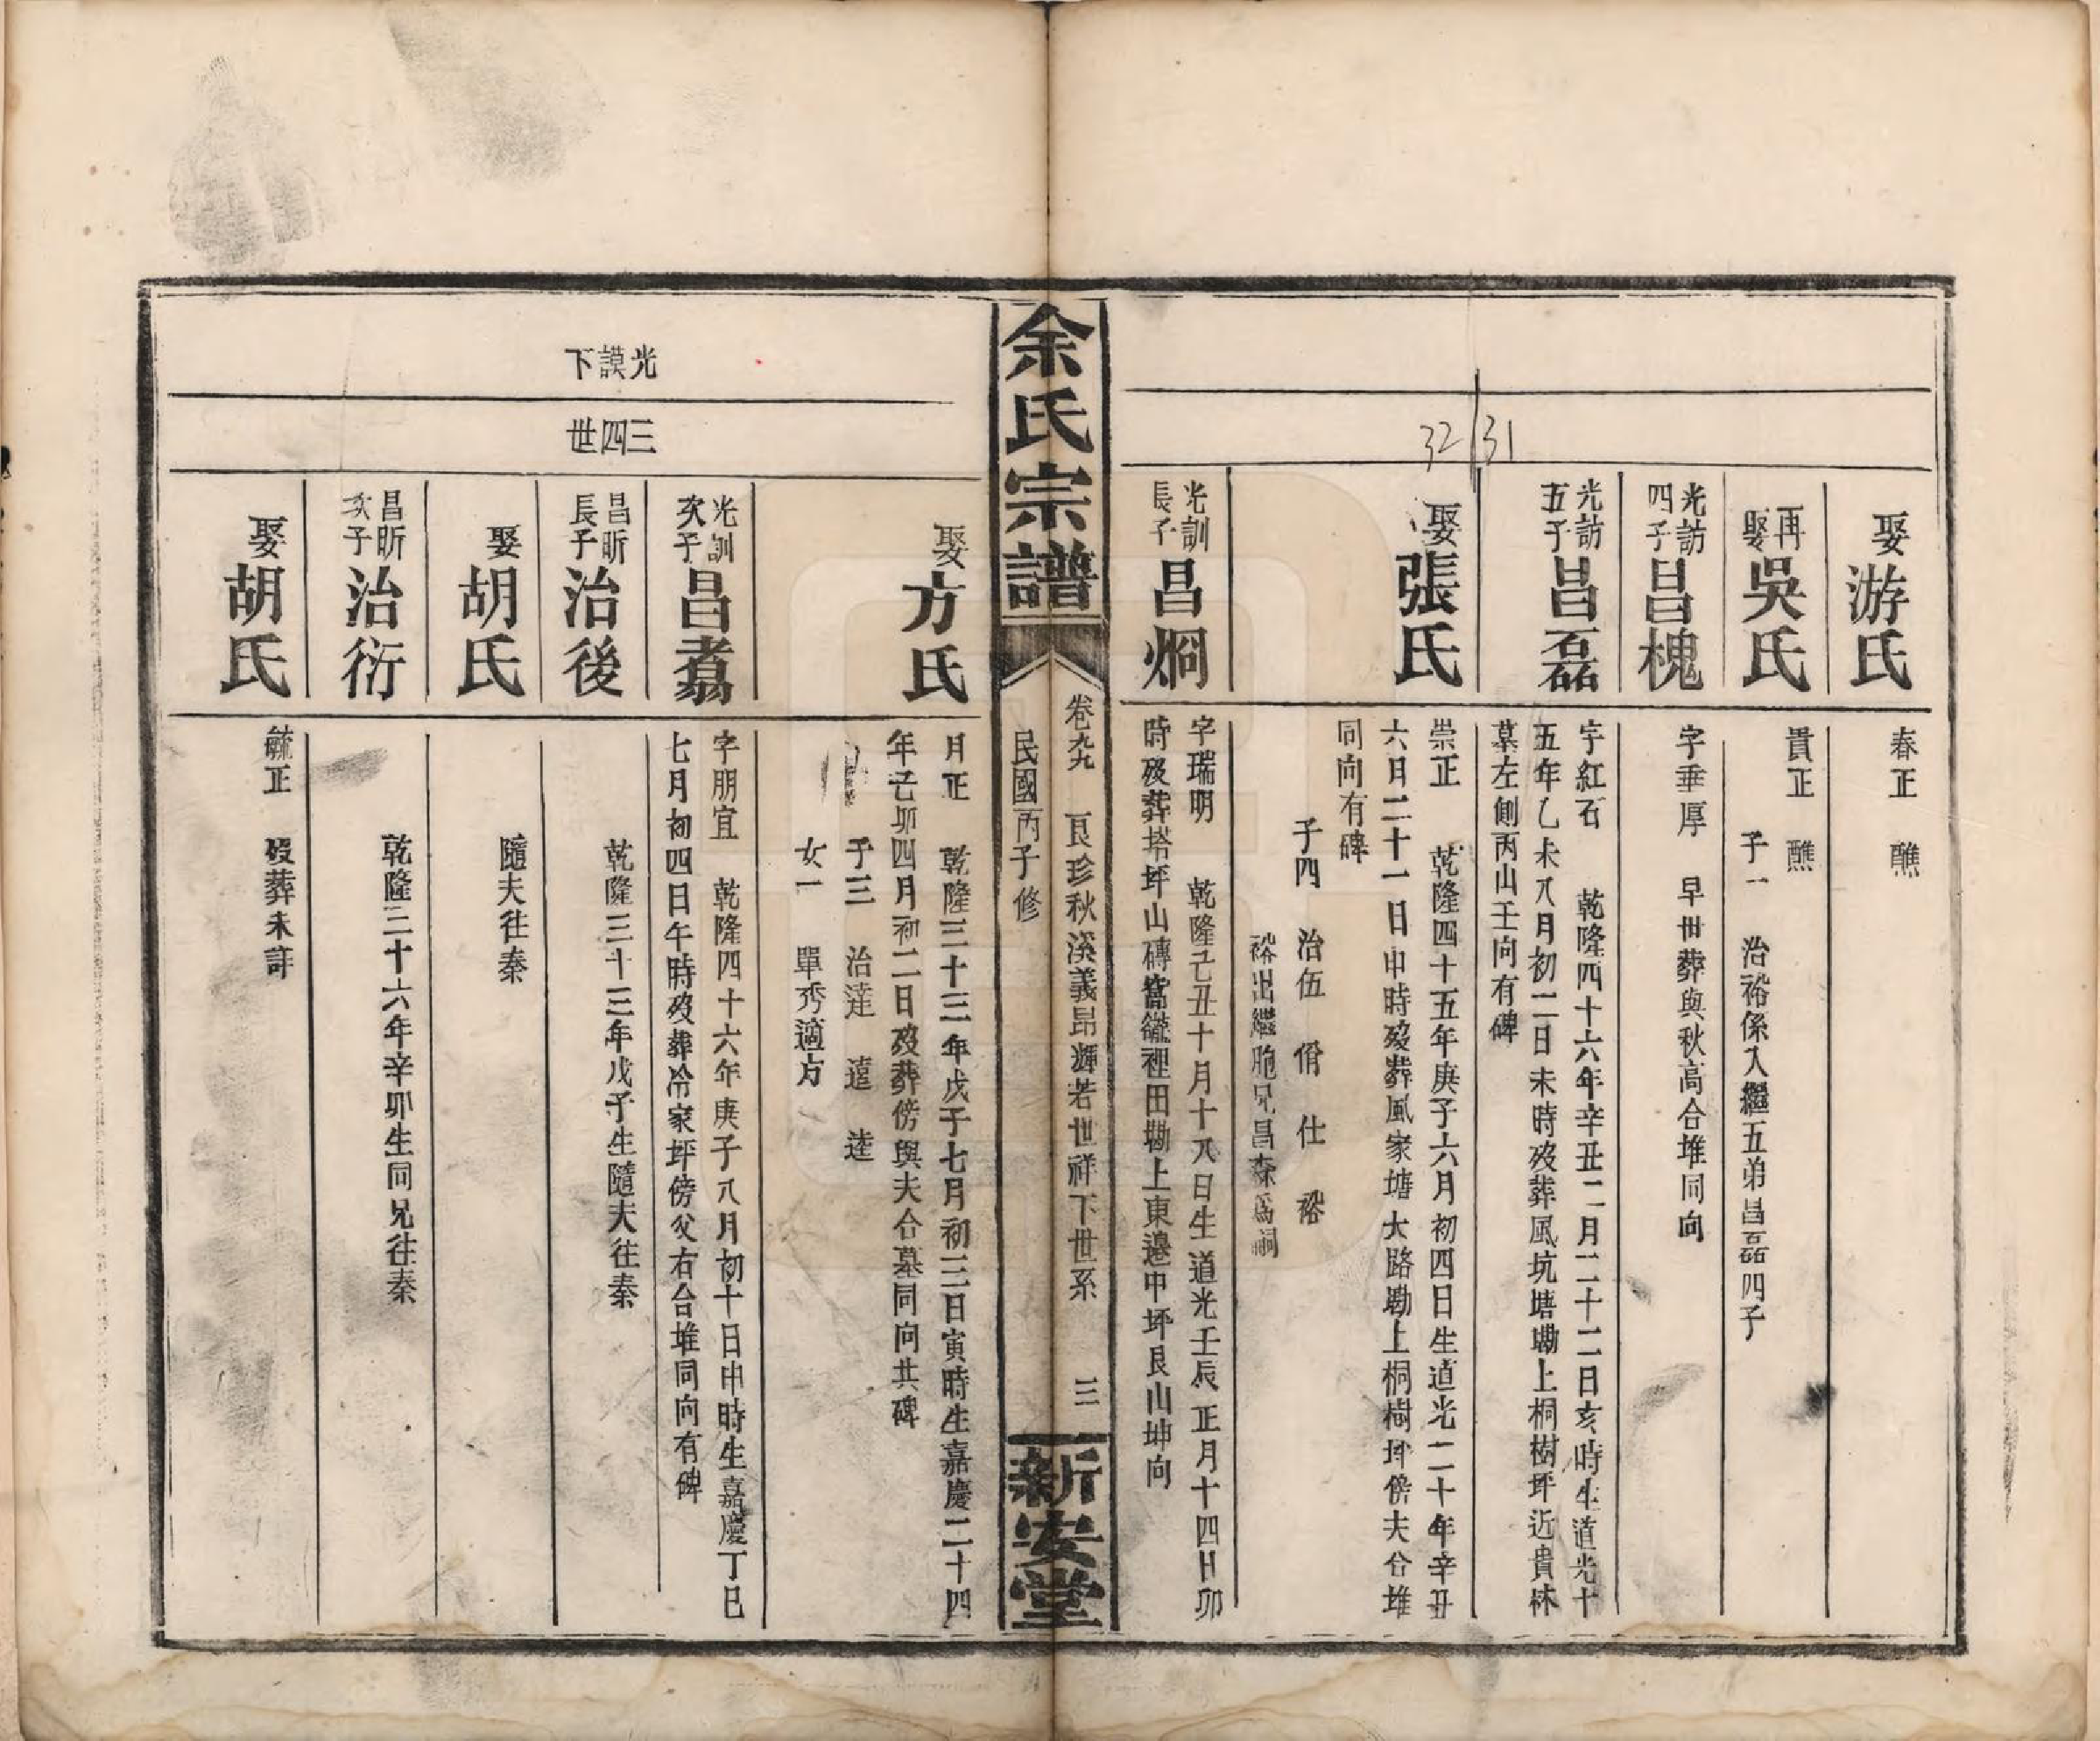 娶游氏
春正　醮
再娶吳氏
貴正　醮
子一　治裕係入繼五弟昌磊四子
光訪四子昌槐
字垂厚　早卅葬與秋高合堆同向
光訪五子昌磊
字紅石　乾隆四十六年辛丑二月二十二日亥時生道光十
五年乙未八月初二日未時歿葬風坑塘磡上桐樹坪近貴林
墓左側丙山壬向有碑
31
32
娶張氏
崇正　乾隆四十五年庚子六月初四日生道光二十年辛丑
六月二十一日申時歿葬風家塘大路磡上桐樹坪傍夫合堆
同向有碑
子四　治伍　脩　仕　裕
裕出繼胞兄昌森爲嗣
光訓長子昌炯
字瑞明　乾隆己丑十月十八日生道光壬辰正月十四日卯
時歿葬塔坪山磚窩裡田磡上東邊中坪艮山坤向
余氏宗譜
卷九　良珍秋溪義昂漋若世祥下世系　三
民國丙子修
新安堂
光謨下
三四世
娶方氏
月正　乾隆三十三年戊子七月初三日寅時生嘉慶二十四
年己卯四月初二日歿葬傍與夫合墓同向共碑
子三　治達　遠　逵
女一　單秀適方
光訓次子昌翥
字朋宜　乾隆四十六年庚子八月初十日申時生嘉慶丁巳
七月初四日午時歿葬冷家坪傍父右合堆同向有碑
昌昕長子治後
乾隆三十三年戊子生隨夫往秦
娶胡氏
隨夫往秦
昌昕次子治衍
乾隆三十六年辛卯生同兄往秦
娶胡氏
毓正　歿葬未詳